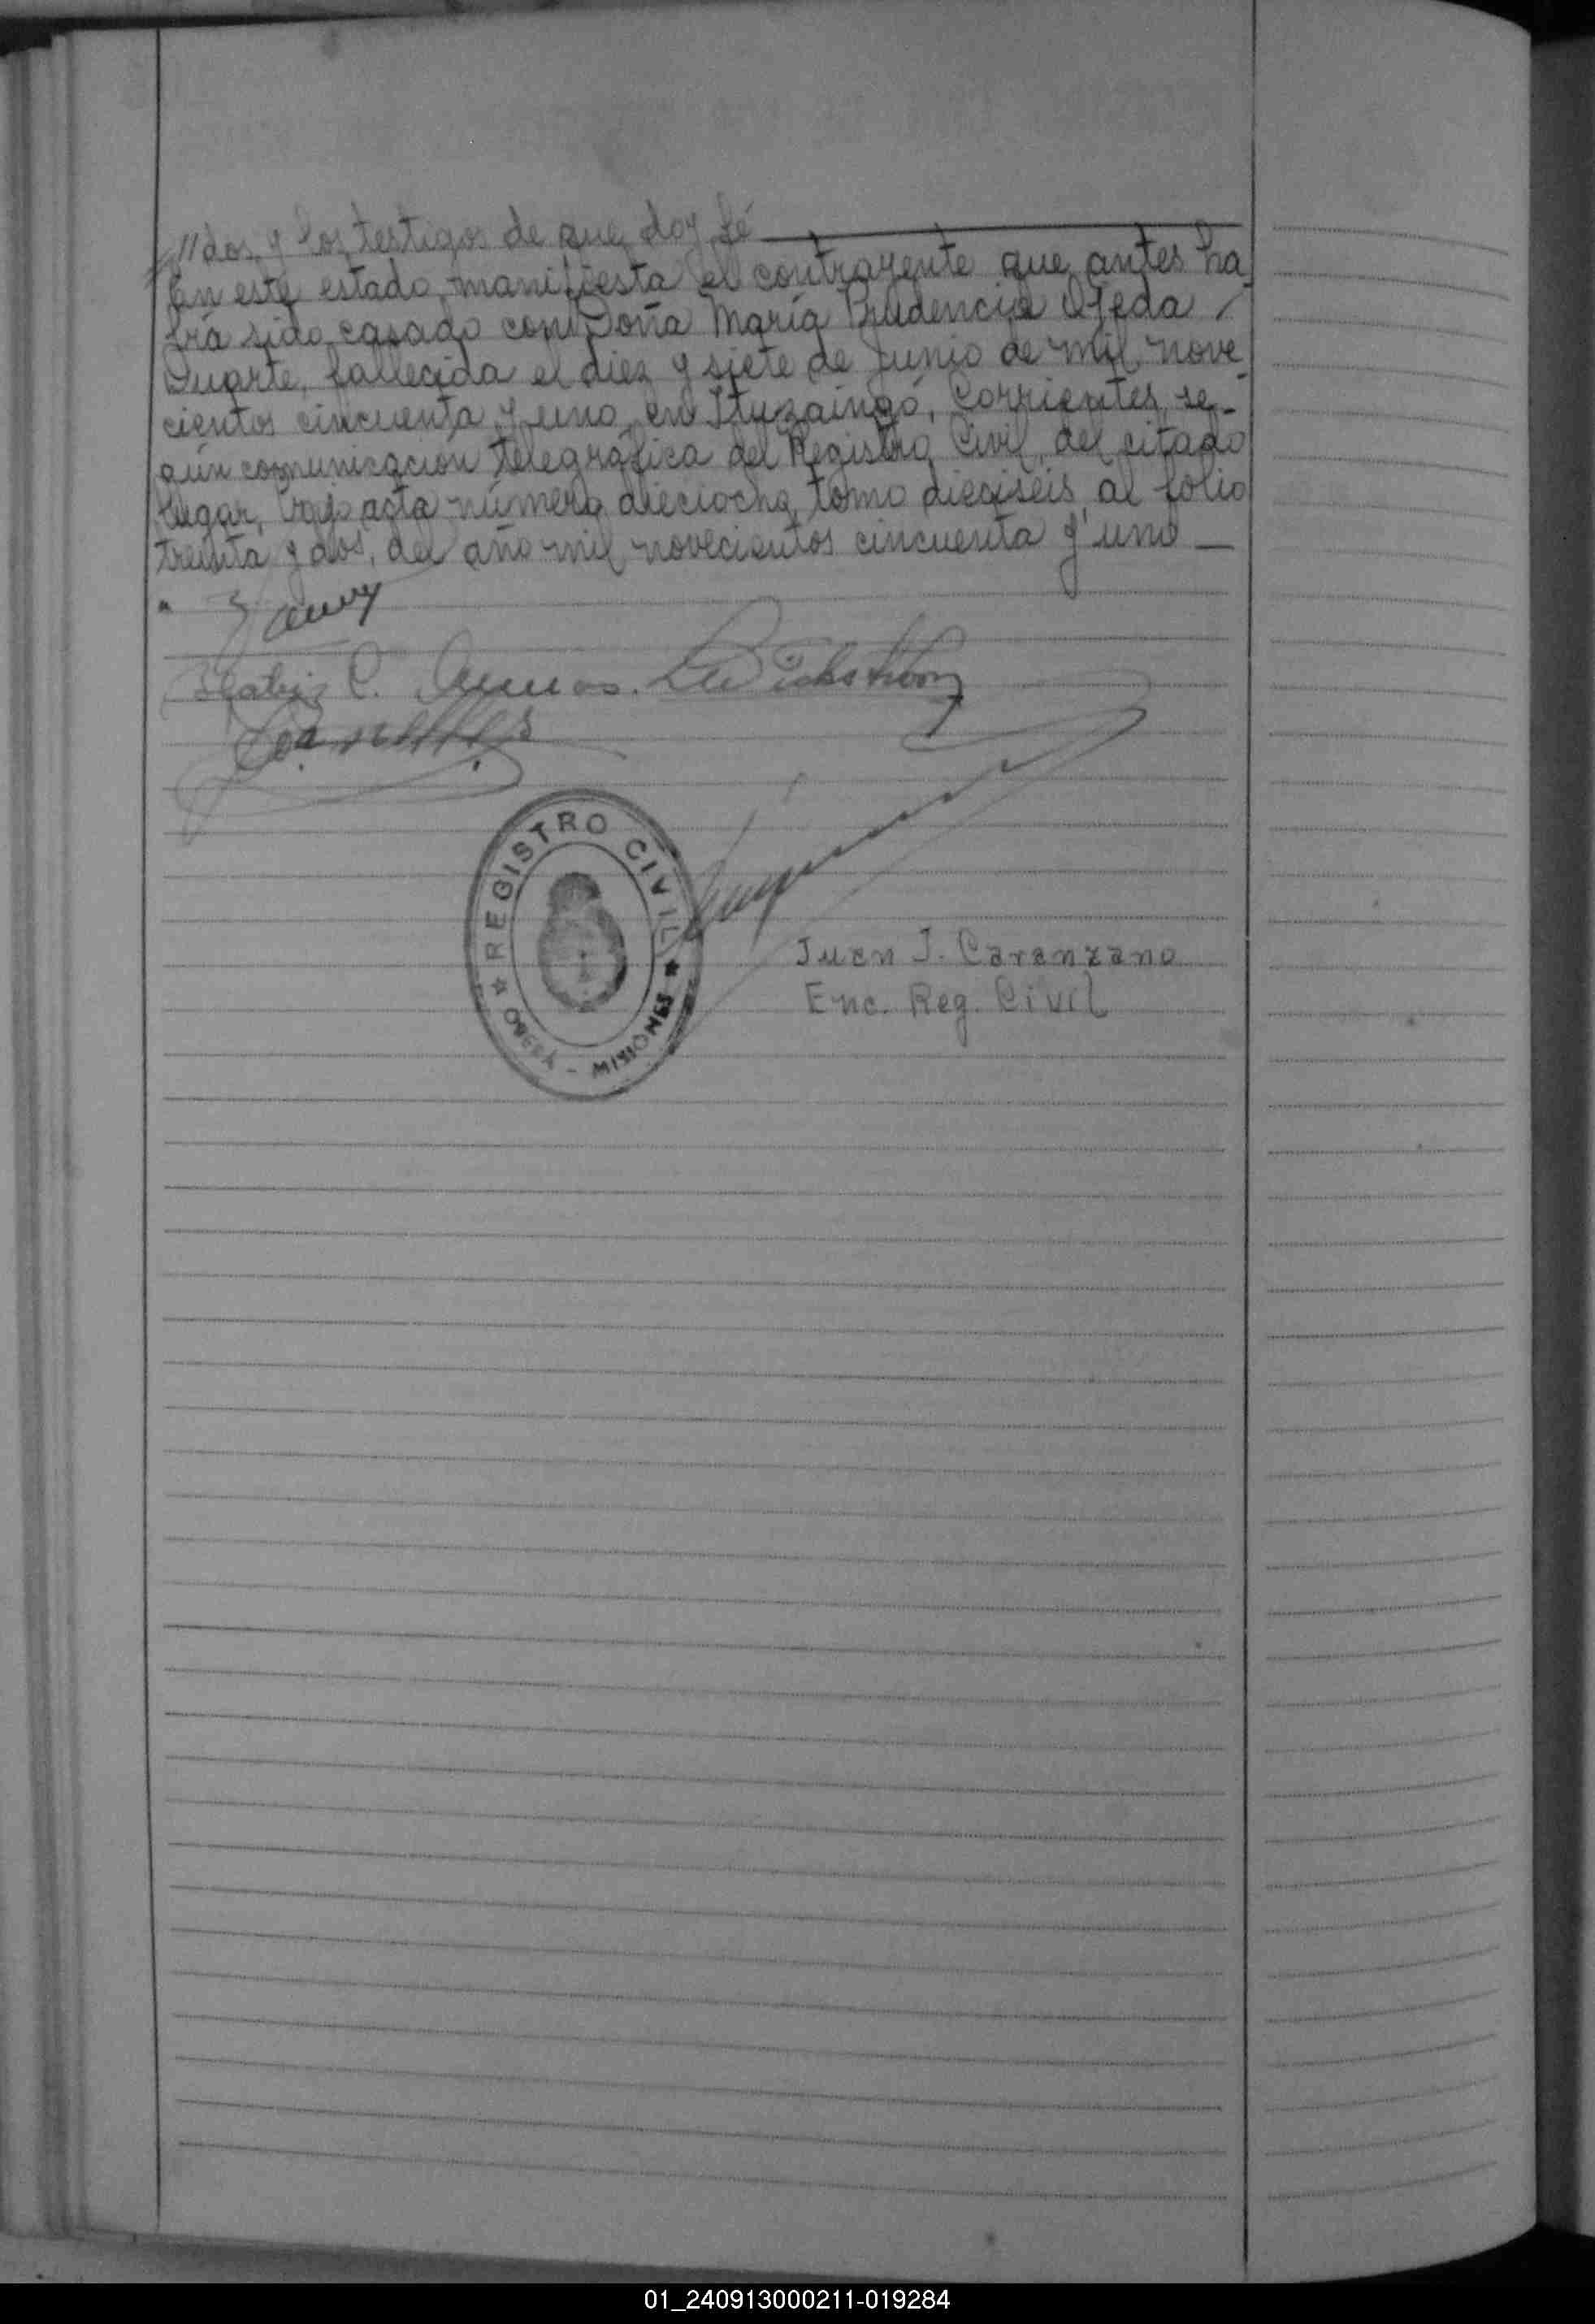 //dos, y los testigos de que doy fé
En este estado, manifiesta el contrayente que antes ha-
bía sido casado con Doña María Prudencia Ojeda /
Duarte, fallecida el diez y siete de Junio de mil nove-
cientos cincuenta y uno, en Ituzaingó, Corrientes, se-
gún comunicación telegráfica del Registro Civil, del citado
lugar, bajo acta número dieciocho, tomo dieciseis, al folio
treinta y dos, del año mil novecientos cincuenta y uno —
Beatriz C.
REGISTRO CIVIL
OBERÁ - MISIONES
Juan J. Caranzano
Enc. Reg. Civil
01_240913000211-019284